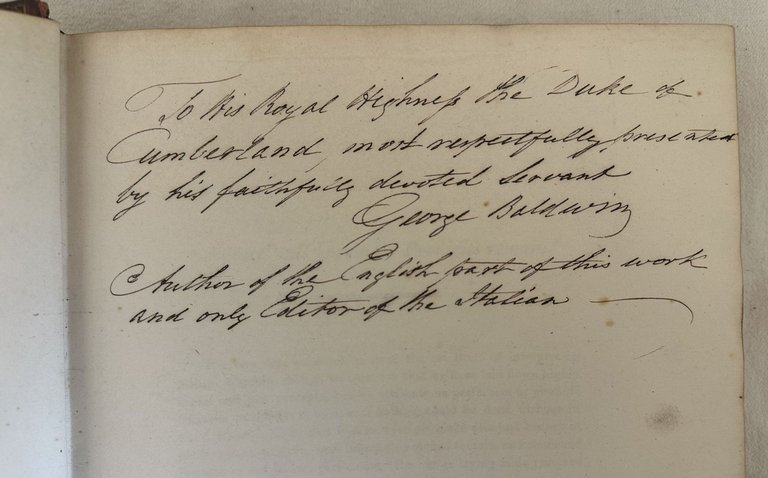 To His Royal Highneſs the Duke of
Cumberland, most respectfully presented
by his faithfully devoted Servant
George Baldwin
Author of the English part of this work
and only Editor of the Italian —